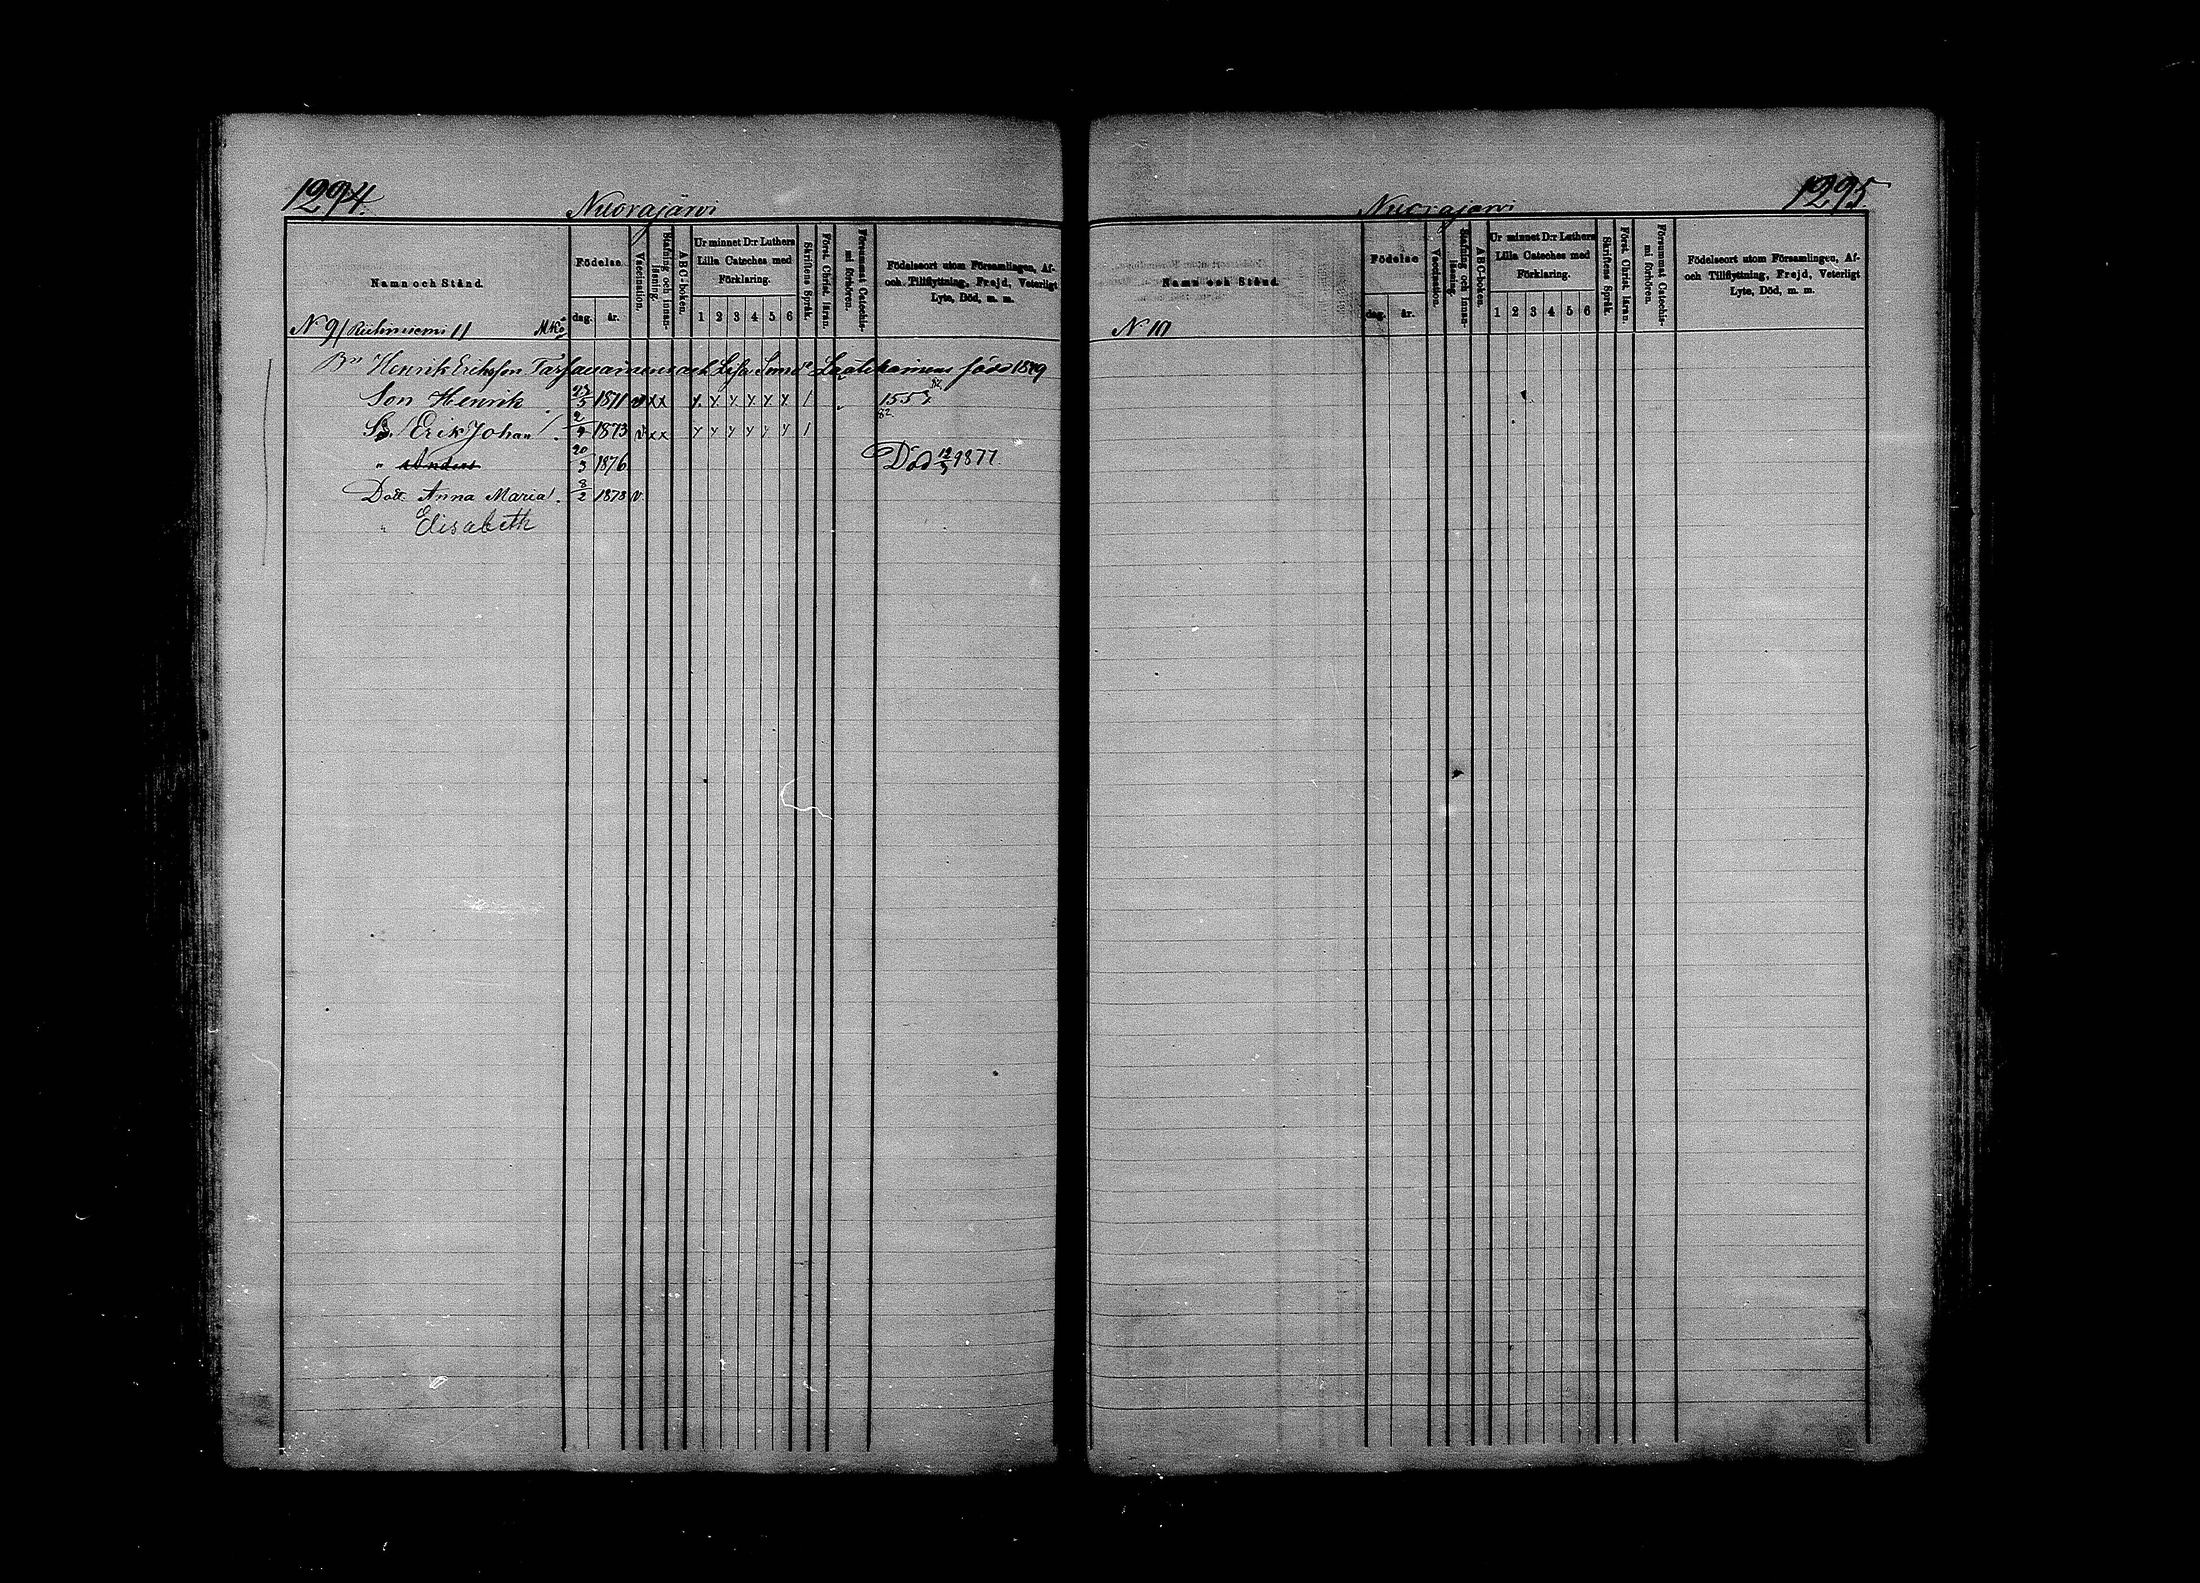 1294.
Nuorajärvi
Namn och Stånd.
Födelse
dag.
år.
Vaccination.
Stafning och innan-läsning.
ABC-boken.
Ur minnet D:r Luthers Lilla Cateches med Förklaring.
1 2 3 4 5 6
Skriftens Språk.
Först. Christ. läran.
Försummat Catechis-mi förhören.
Födelseort utom Församlingen, Af- och Tillflyttning, Frejd, Veterligt Lyte, Död, m. m.
N 9/ 11
Bn Henrik Eriksson och Lisa född 1849
Son Henrik 23/5 1871 v x x 1553
Erik Johan 2/4 1873 v x x
" Anders 20/3 1876 Död 1877.
Dott. Anna Maria 8/2 1878 v.
" Elisabeth
1295.
Nuorajarvi
Namn och Stånd.
Födelse
dag.
år.
Vaccination.
Stafning och innan-läsning.
ABC-boken.
Ur minnet D:r Luthers Lilla Cateches med Förklaring.
1 2 3 4 5 6
Skriftens Språk.
Först. Christ. läran.
Försummat Catechis-mi förhören.
Födelseort utom Församlingen, Af- och Tillflyttning, Frejd, Veterligt Lyte, Död, m. m.
N 10